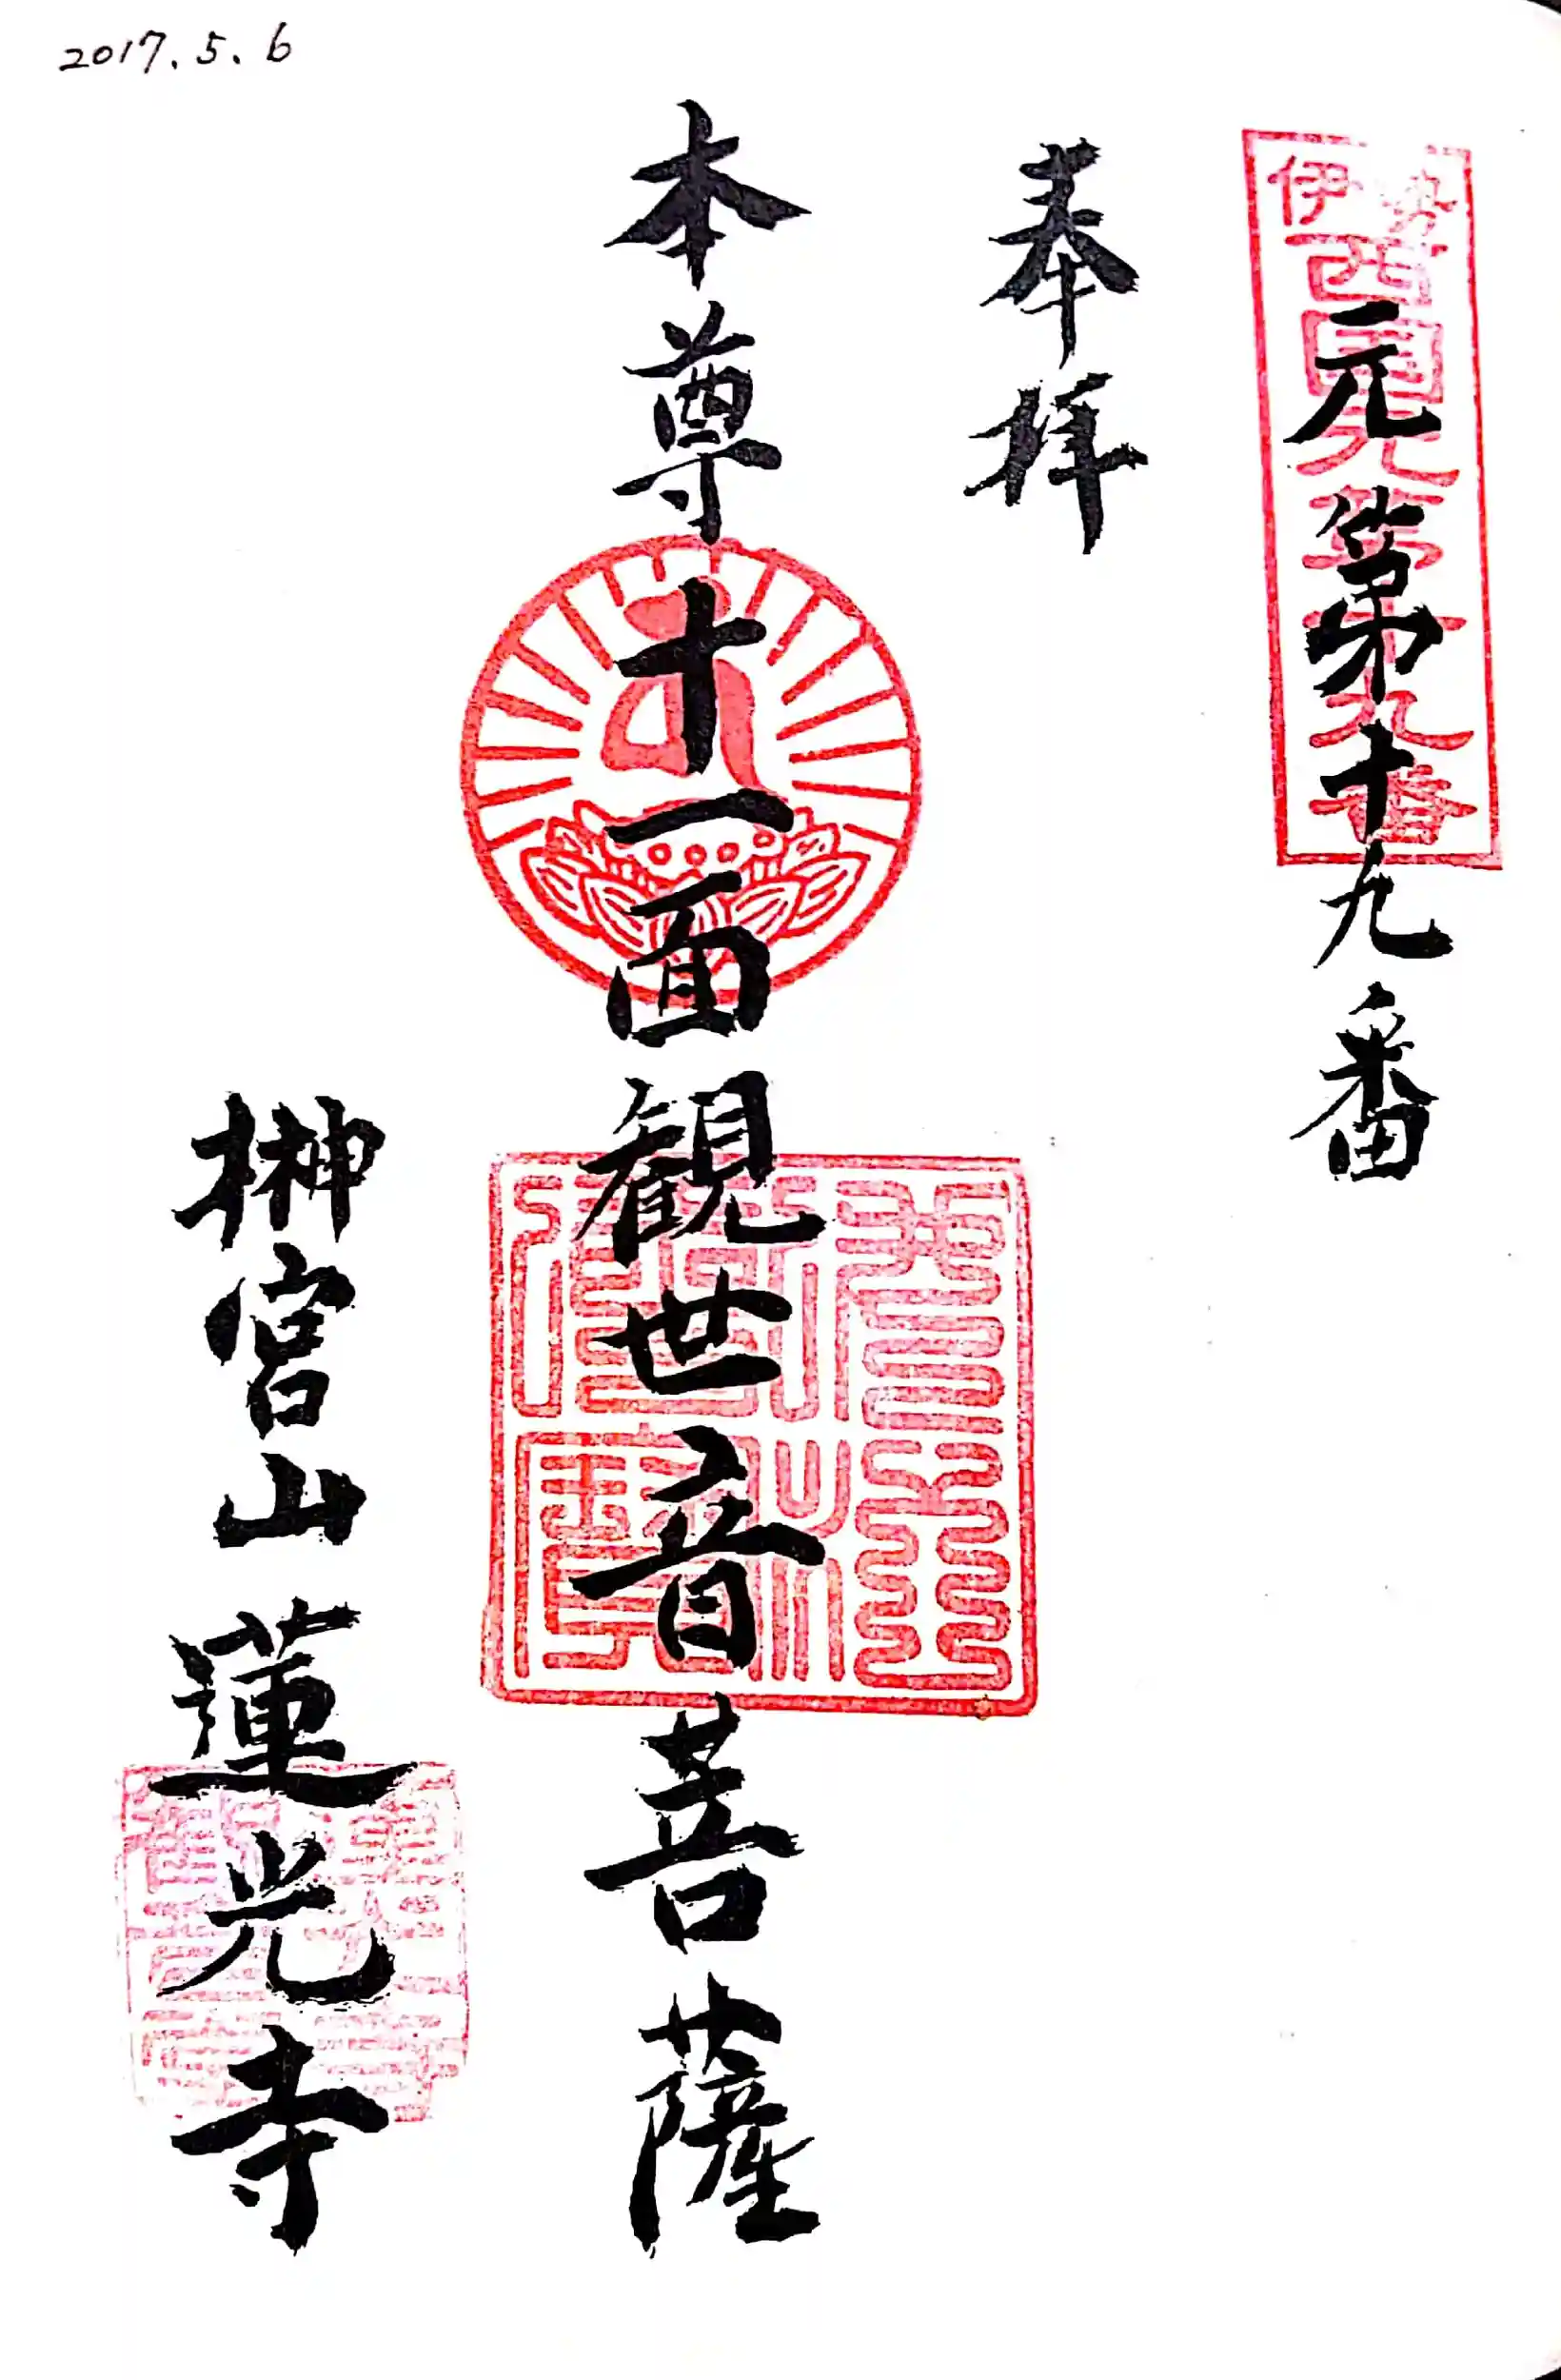 2017.5.6
伊勢西国元第十九番
元第十九番
奉拝
本尊十一面観世音菩薩
榊宮山 蓮光寺